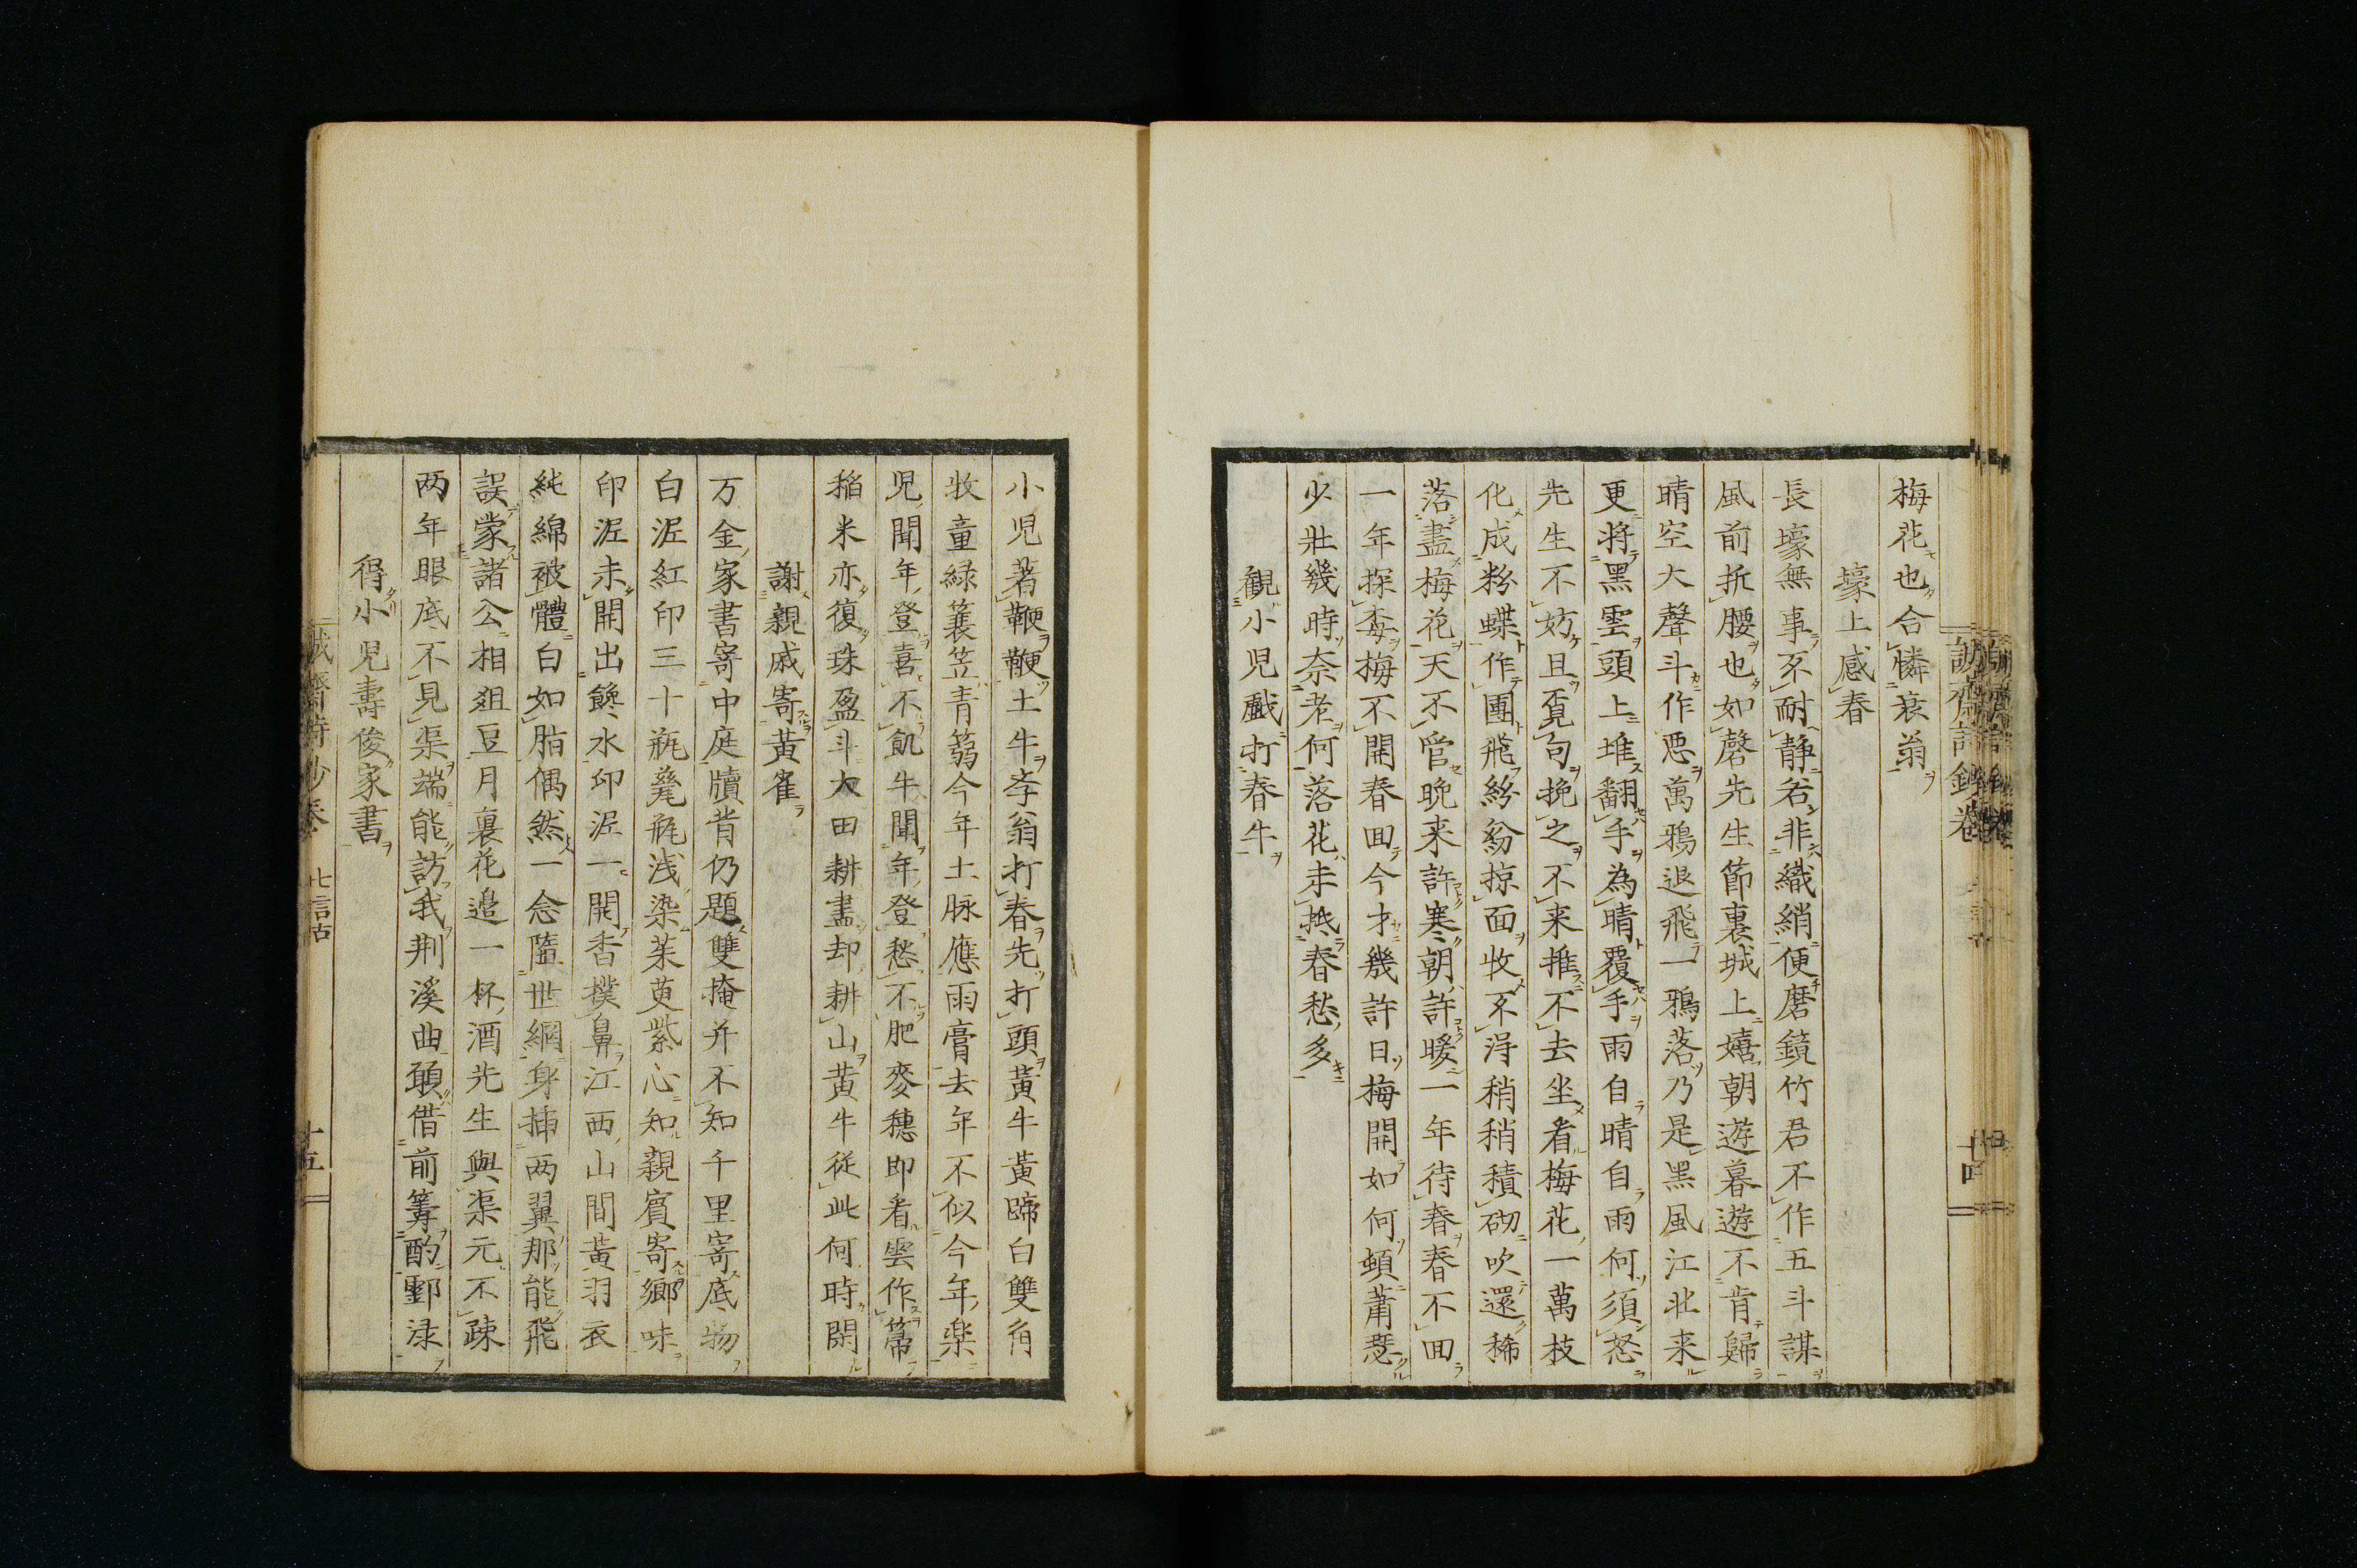 梅花也合憐衰翁
壕上感春
長壕無事不耐静若非織綃便磨鏡竹君不作五斗謀
風前折腰也如磬先生節裏城上嬉朝遊暮遊不肯歸
晴空大聲斗作惡萬鴉退飛一鴉落乃是黑風江北来
更将黑雲頭上堆翻手為晴覆手雨自晴自雨何須怒
先生不妨且覓句挽之不来推不去坐看梅花一萬枝
化成粉蝶作團飛紛紛掠面收不得稍稍積砌吹還稀
落盡梅花天不管晩来許寒朝許暖一年待春春不回
一年探梅梅不開春回今才幾許日梅開如何頓蕭瑟
少壯幾時奈老何落花未抵春愁多
觀小児戯打春牛
小児著鞭鞭土牛学翁打春先打頭黃牛黃蹄白雙角
牧童緑蓑笠青篛今年土脉應雨膏去年不似今年楽
児聞年登喜不飢牛聞年登愁不肥麥穗即看雲作箒
稲米亦復珠盈斗大田耕盡却耕山黃牛従此何時閑
謝親戚寄黃雀
万金家書寄中庭牘背仍題雙掩并不知千里寄底物
白泥紅印三十瓶甆瓶浅染茱萸紫心知親賓寄鄉味
印泥未開出饞水印泥一開香撲鼻江西山間黃羽衣
純綿被體白如脂偶然一念隨世網身挿両翼那能飛
誤蒙諸公相俎豆月裏花邉一杯酒先生與渠元不疎
两年眼底不見渠端能訪我荆溪曲願借前籌酌酃渌
得小児壽俊家書
誠齋詩鈔卷
十四
誠齋詩鈔卷 七言古
十五